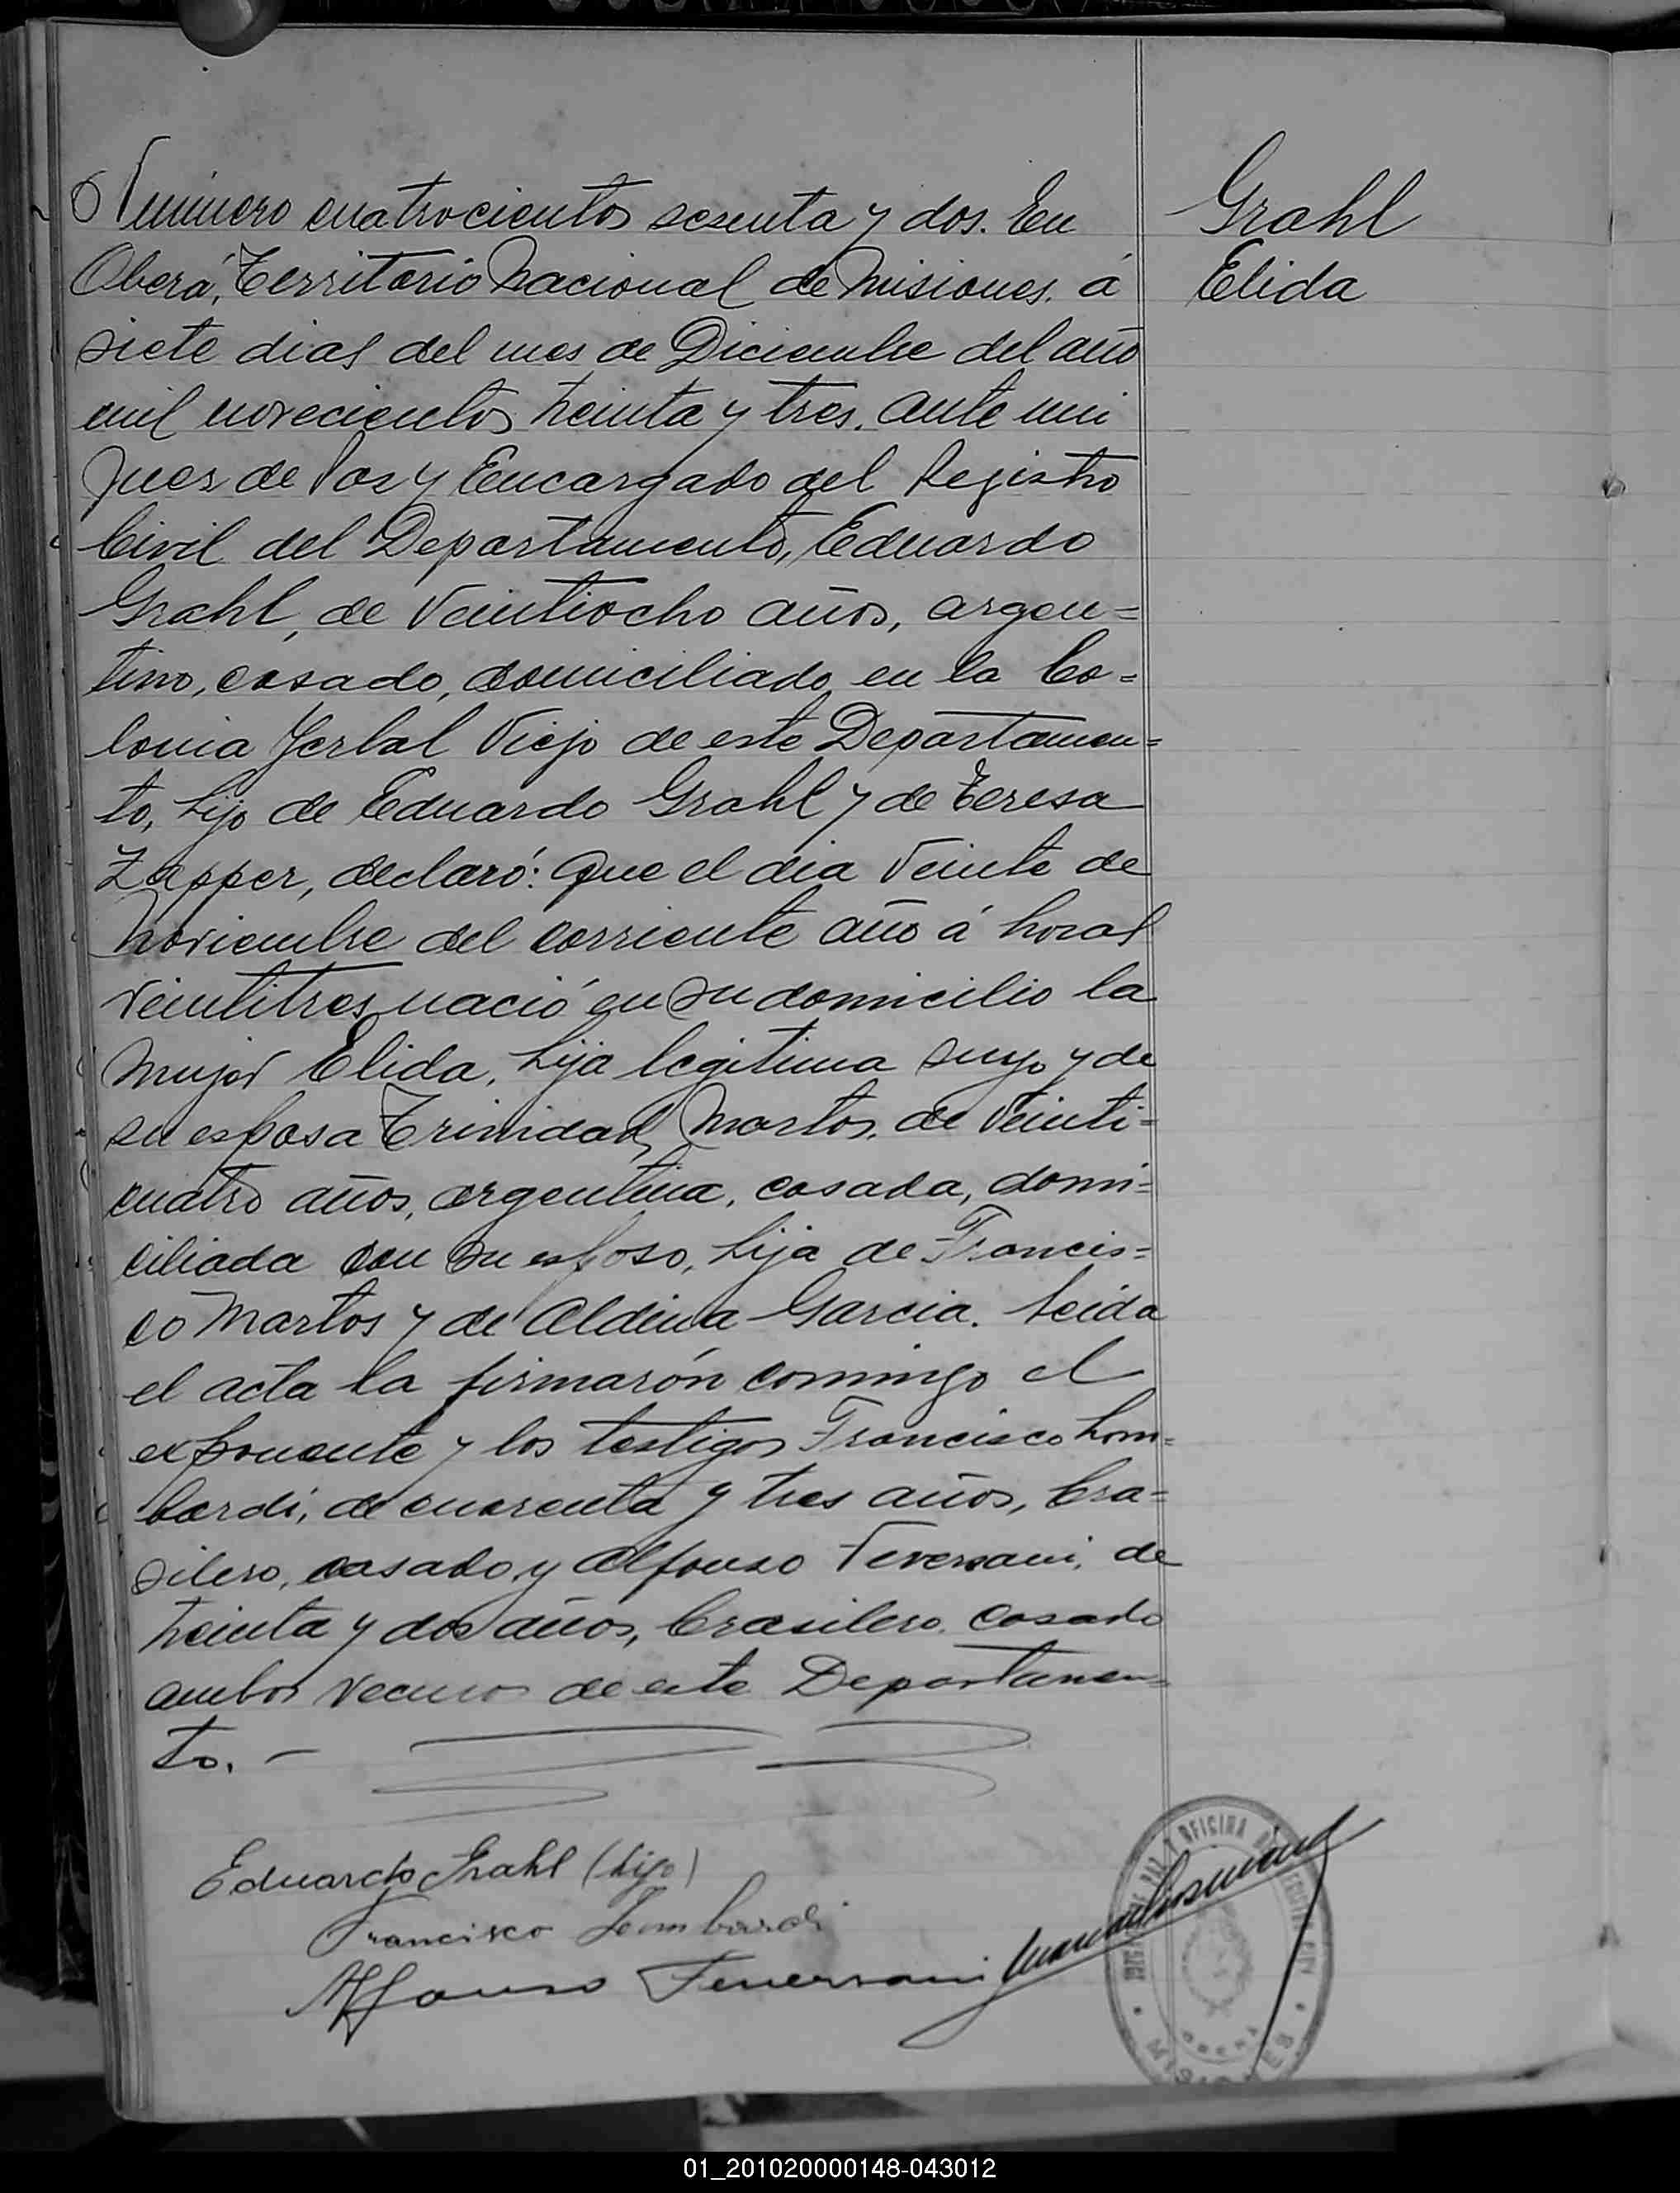 Número cuatrocientos sesenta y dos. En
Oberá, Territorio Nacional de Misiones, á
siete dias del mes de Diciembre del año
mil novecientos treinta y tres, ante mi
Juez de Paz y Encargado del Registro
Civil del Departamento, Eduardo
Grahl, de veintiocho años, argen=
tino, casado, domiciliado en la Co=
lonia Yerbal Viejo de este Departamen=
to, hijo de Eduardo Grahl y de Teresa
Zapper, declaró: Que el dia veinte de
Noviembre del corriente año á horas
veintitres nació en su domicilio la
mujer Elida, hija legitima suya y de
su esposa Trinidad Martos, de veinti=
cuatro años, argentina, casada, domi=
ciliada con su esposo, hija de Francis=
co Martos y de Aldina Garcia. Leida
el acta la firmarón conmigo el
exponente y los testigos Francisco Lom=
bardi, de cuarenta y tres años, bra=
silero, casado y Alfonso Feversani, de
treinta y dos años, brasilero, casado
ambos vecinos de este Departamen=
to. —
Grahl
Elida
Eduardo Grahl (hijo)
Francisco Lombardi
Alfonso Feversani
OFICINA
OBERA
MISIONES
01_201020000148-043012